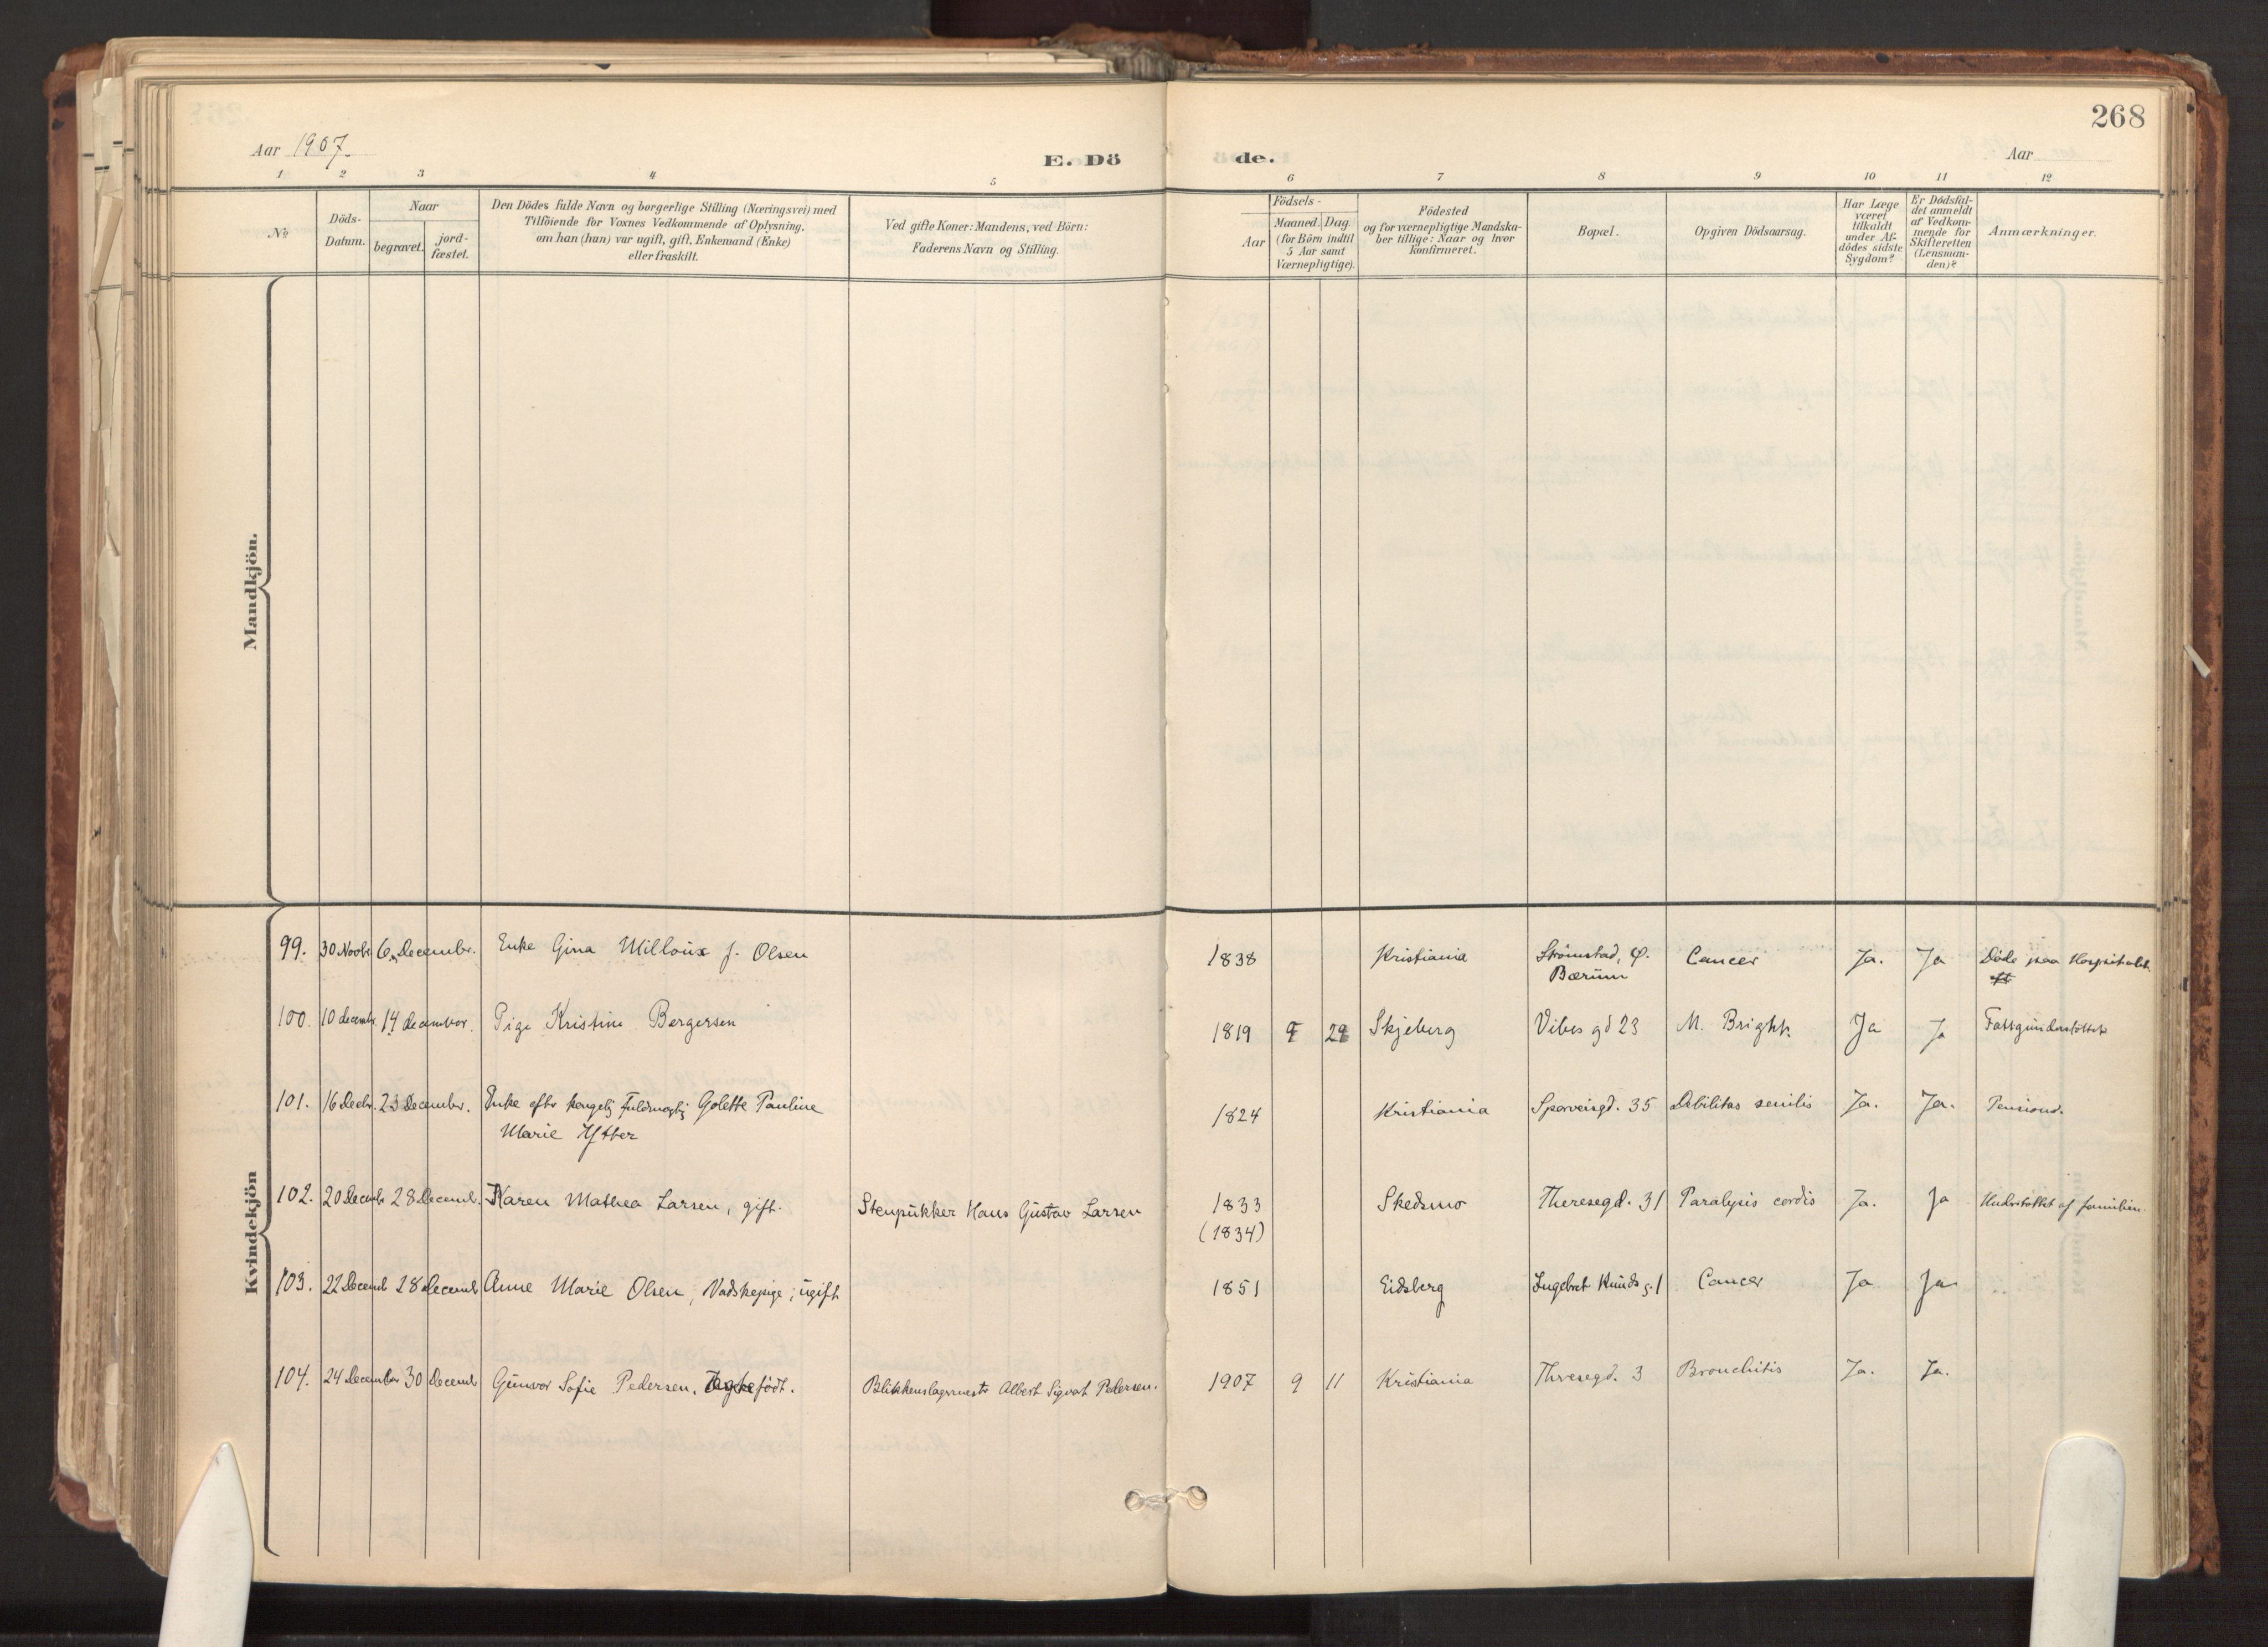 268
Aar 1907.
E. Dö
de.
Aar
1 2 3 4 5 6 7 8 9 10 11 12
Nr
Döds-
Datum.
Naar
begravet.
jord-
fæstet.
Den Dödes fulde Navn og borgerlige Stilling (Næringsvei) med
Tilföiende for Voxnes Vedkommende af Oplysning,
om han (hun) var ugift, gift, Enkemand (Enke)
eller fraskilt.
Ved gifte Koner: Mandens, ved Börn:
Faderens Navn og Stilling.
Födsels-
Aar
Maaned. Dag.
(for Börn indtil
5 Aar samt
Værnepligtige).
Födested
og for værnepligtige Mandska-
ber tillige: Naar og hvor
konfirmeret.
Bopæl.
Opgiven Dödsaarsag.
Har Læge
været
tilkaldt
under Af-
dödes sidste
Sygdom?
Er Dödsfal-
det anmeldt
af Vedkom-
mende for
Skifteretten
(Lensman-
den)?
Anmærkninger.
Mandkjön.
Kvindekjön
99. 30 Novbr. 6. December. Enke Gina Milloux f. Olsen 1838 Kristiania Strömstad, Cancer Ja. Ja Döde paa Hospitalet.
Bærum
100. 10 decembr. 14 december. Pige Kristine Bergersen 1819 29 Skjeberg Vibes gd 23 M. Brighti Ja J Fattigunderstöttet
101. 16 Decbr. 23 December. Enke efter kongelig Fuldmægtig Golette Pauline 1824 Kristiania Sporveisgd. 35 Debilitas senilis Ja. Ja. Pension.
Marie
102. 20 Decembr 28 Decemb. Karen Mathea Larsen, gift. Stenpukker Hans Gustav Larsen 1833 Skedsmo Theresegd. 31 Paralysis cordis Ja. Ja Understöttet af familien.
(1834)
103. 22 Decemb 28 Decemb Anne Marie Olsen, Vadskepige, ugift 1851 Eidsberg Ingebret Knuds g. 1 Cancer Ja Ja
104. 24 December 30 Decemb Gunvor Sofie Pedersen, födt. Blikkenslagermester Albert Sigvat Pedersen. 1907 9 11 Kristiania Theresegd. 3 Bronchitis Ja. Ja.